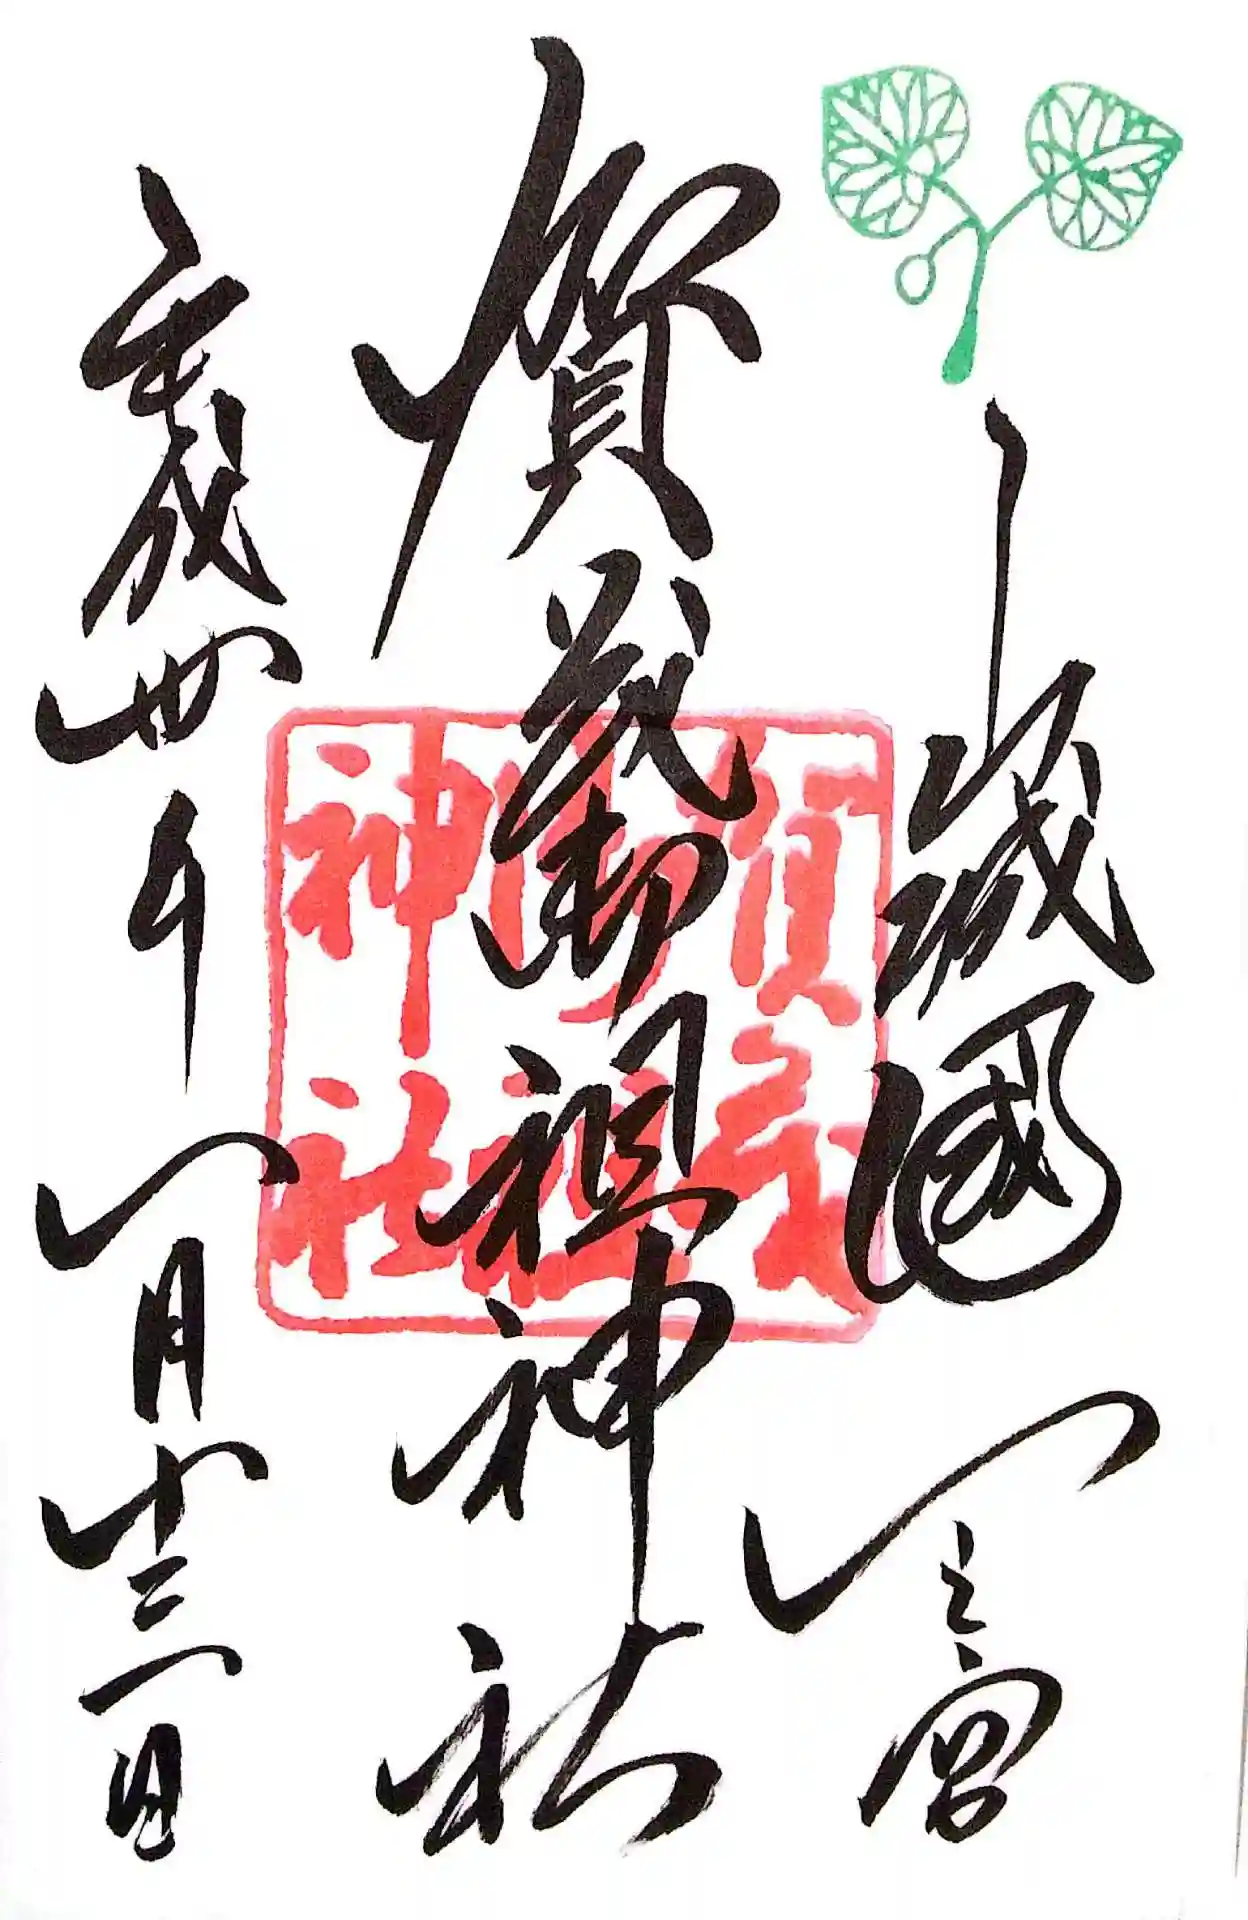 山城國一之宮
賀茂御祖神社
平成卅年一月十三日
賀茂
御祖
神社